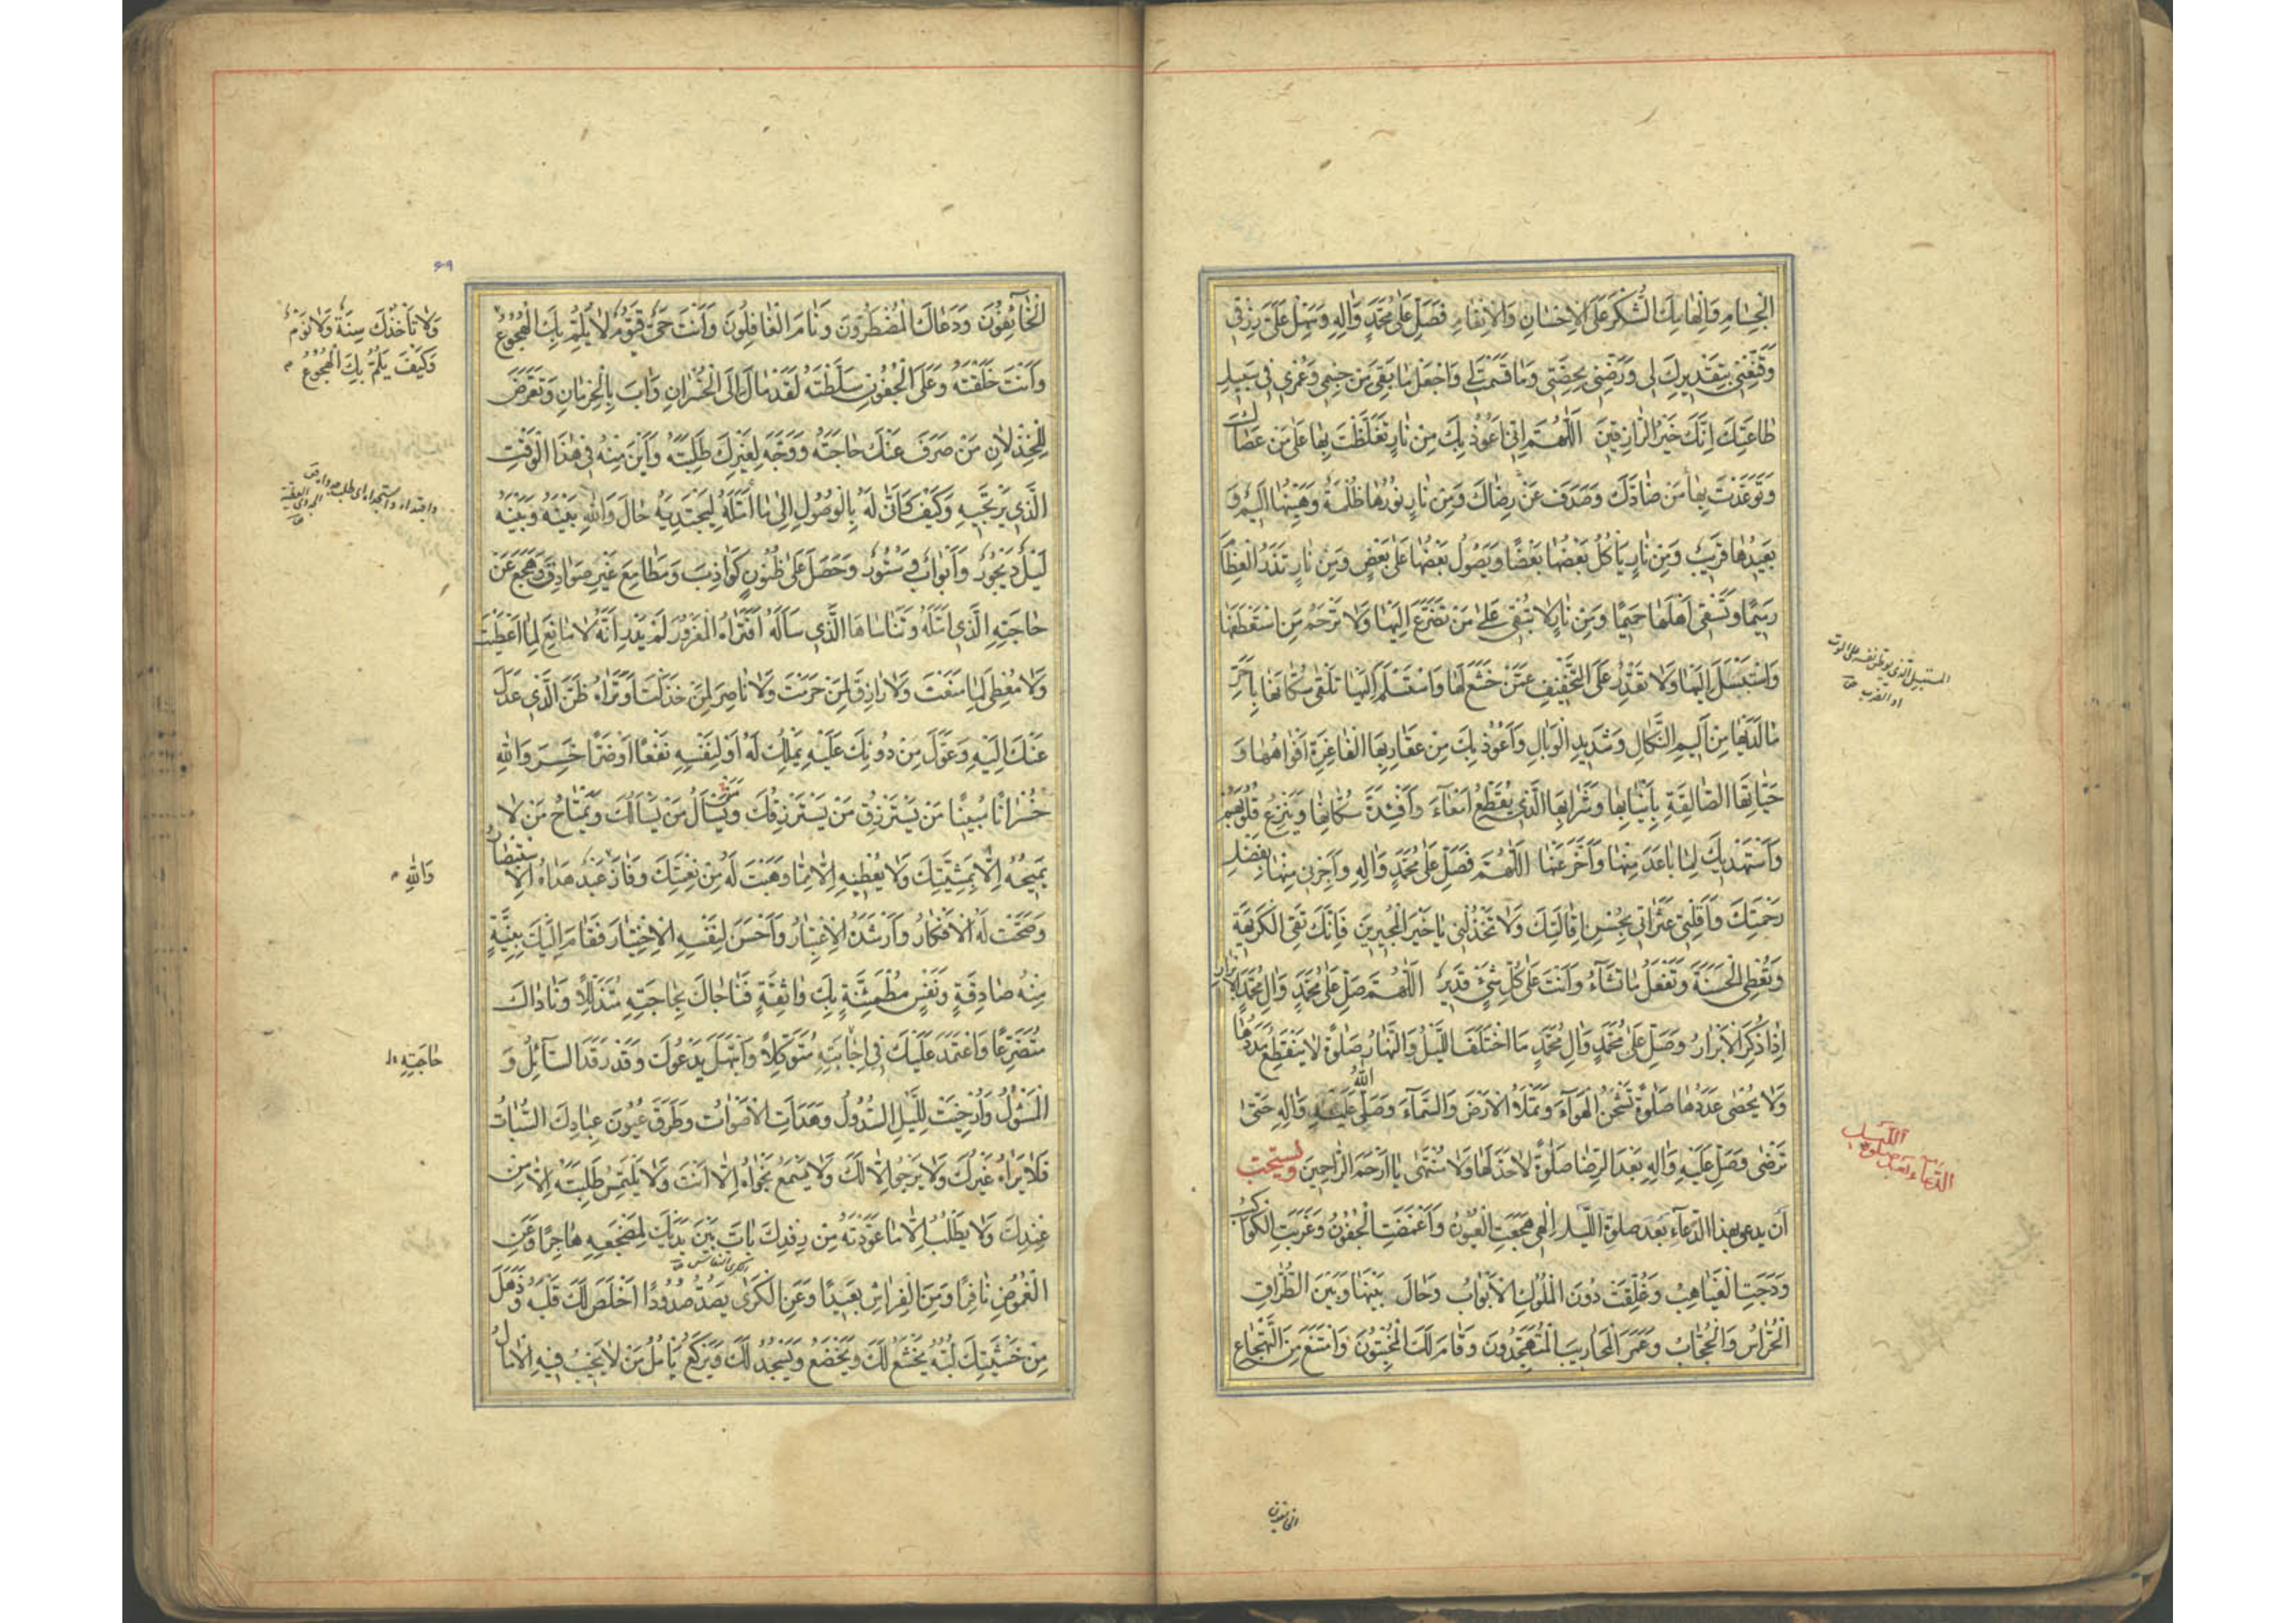 الْجِسَامِ وَاِلْهَامِكَ الشُّكْرَ عَلَى الْاِحْسَانِ وَالْاِنْعَامِ فَصَلِّ عَلٰى مُحَمَّدٍ وَاٰلِهِ وَسَهِّلْ عَلَىَّ رِزْقِى
وَقَنِّعْنِى بِتَقْدِيرِكَ لِى وَرَضِّنِى بِحِصَّتِى وَمَا قَسَمْتَ لِى وَاجْعَلْ مَا بَقِىَ مِنْ جِسْمِى وَعُمْرِى فِى سَبِيلِ
طَاعَتِكَ اِنَّكَ خَيْرُ الرَّازِقِينَ اَللّٰهُمَّ اِنِّى اَعُوذُ بِكَ مِنْ نَارٍ تَغَلَّظْتَ بِهَا عَلٰى مَنْ عَصَاكَ
وَتَوَعَّدْتَ بِهَا مَنْ ضَادَّكَ وَصَدَفَ عَنْ رِضَاكَ وَمِنْ نَارٍ نُورُهَا ظُلْمَةٌ وَهَيِّنُهَا اَلِيمٌ وَ
بَعِيدُهَا قَرِيبٌ وَمِنْ نَارٍ يَاْكُلُ بَعْضُهَا بَعْضًا وَيَصُولُ بَعْضُهَا عَلٰى بَعْضٍ وَمِنْ نَارٍ تَذَرُ الْعِظَامَ
رَمِيمًا وَتَسْقِى اَهْلَهَا حَمِيمًا وَمِنْ نَارٍ لَا تُبْقِى عَلٰى مَنْ تَضَرَّعَ اِلَيْهَا وَلَا تَرْحَمُ مَنِ اسْتَعْطَفَهَا
وَاسْتَبْسَلَ اِلَيْهَا وَلَا تَقْدِرُ عَلَى التَّخْفِيفِ عَمَّنْ خَشَعَ لَهَا وَاسْتَسْلَمَ اِلَيْهَا تَلْقٰى سُكَّانَهَا بِاَحَرِّ
مَا لَدَيْهَا مِنْ اَلِيمِ النَّكَالِ وَشَدِيدِ الْوَبَالِ وَاَعُوذُ بِكَ مِنْ عَقَارِبِهَا الْفَاغِرَةِ اَفْوَاهُهَا وَ
حَيَّاتِهَا الصَّالِقَةِ بِاَنْيَابِهَا وَشَرَابِهَا الَّذِى يُقَطِّعُ اَمْعَاءَ وَاَفْئِدَةَ سُكَّانِهَا وَيَنْزِعُ قُلُوبَهُمْ
وَاَسْتَهْدِيكَ لِمَا بَاعَدَ مِنْهَا وَاَخَّرَ عَنْهَا اَللّٰهُمَّ فَصَلِّ عَلٰى مُحَمَّدٍ وَاٰلِهِ وَاَجِرْنِى مِنْهَا بِفَضْلِ
رَحْمَتِكَ وَاَقِلْنِى عَثَرَاتِى بِحُسْنِ اِقَالَتِكَ وَلَا تَخْذُلْنِى يَا خَيْرَ الْمُجِيرِينَ فَاِنَّكَ تَقِى الْكَرِيهَةَ
وَتُعْطِى الْحَسَنَةَ وَتَفْعَلُ مَا تَشَاءُ وَاَنْتَ عَلٰى كُلِّ شَىْءٍ قَدِيرٌ اَللّٰهُمَّ صَلِّ عَلٰى مُحَمَّدٍ وَاٰلِ مُحَمَّدٍ
اِذَا ذُكِرَ الْاَبْرَارُ وَصَلِّ عَلٰى مُحَمَّدٍ وَاٰلِ مُحَمَّدٍ مَا اخْتَلَفَ اللَّيْلُ وَالنَّهَارُ صَلٰوةً لَا يَنْقَطِعُ مَدَدُهَا
وَلَا يُحْصٰى عَدَدُهَا صَلٰوةً تَشْحَنُ الْهَوَاءَ وَتَمْلَأُ الْاَرْضَ وَالسَّمَاءَ وَصَلَّى اللّٰهُ عَلَيْهِ وَاٰلِهِ حَتّٰى
تَرْضٰى وَصَلِّ عَلَيْهِ وَاٰلِهِ بَعْدَ الرِّضَا صَلٰوةً لَا حَدَّ لَهَا وَلَا مُنْتَهٰى يَا اَرْحَمَ الرَّاحِمِينَ ويستحب
اَن يدعى بهذا الدّعاء بَعْدَ صلوة اللَّيْل اِلٰهِى هَجَعَتِ الْعُيُونُ وَاَغْمَضَتِ الْجُفُونُ وَغَرَبَتِ الْكَوَاكِبُ
وَدَجَتِ الْغَيَاهِبُ وَغُلِّقَتْ دُونَ الْمُلُوكِ الْاَبْوَابُ وَحَالَ بَيْنَهَا وَبَيْنَ الطُّرَّاقِ
الْحُرَّاسُ وَالْحُجَّابُ وَعَمَرَ الْمَحَارِيبَ الْمُتَهَجِّدُونَ وَقَامَ لَكَ الْمُخْبِتُونَ وَامْتَنَعَ مِنَ التَّهْجَاعِ
المستبسل الّذى يوطّن نفسه على الموت
او الضرب
الخائفون
٦٩
الْخَائِفُونَ وَدَعَاكَ الْمُضْطَرُّونَ وَنَامَ الْغَافِلُونَ وَاَنْتَ حَىٌّ قَيُّومٌ لَا يُلِمُّ بِكَ الْهُجُوعُ
وَاَنْتَ خَلَقْتَهُ وَعَلَى الْجُفُونِ سَلَّطْتَهُ لَقَدْ مَالَ اِلَى الْخُسْرَانِ وَاٰبَ بِالْحِرْمَانِ وَتَعَرَّضَ
لِلْخِذْلَانِ مَنْ صَرَفَ عَنْكَ حَاجَتَهُ وَوَجَّهَ لِغَيْرِكَ طَلِبَتَهُ وَاَيْنَ مِنْهُ فِى هٰذَا الْوَقْتِ
الَّذِى يَرْتَجِيهِ وَكَيْفَ وَاَنّٰى لَهُ بِالْوُصُولِ اِلٰى مَا اَمَّلَهُ لِيَجْتَدِيَهُ حَالَ وَاللّٰهِ بَيْنَهُ وَبَيْنَهُ
لَيْلٌ دَيْجُورٌ وَاَبْوَابٌ وَسُتُورٌ وَحَصَلَ عَلٰى ظُنُونٍ كَوَاذِبَ وَمَطَامِعَ غَيْرِ صَوَادِقَ وَهَجَعَ عَنْ
حَاجَتِهِ الَّذِى اَمَّلَهُ وَتَنَاسَاهَا الَّذِى سَاَلَهُ اَفَتَرَاهُ الْمَغْرُورَ لَمْ يَدْرِ اَنَّهُ لَا مَانِعَ لِمَا اَعْطَيْتَ
وَلَا مُعْطِىَ لِمَا مَنَعْتَ وَلَا رَازِقَ لِمَنْ حَرَمْتَ وَلَا نَاصِرَ لِمَنْ خَذَلْتَ اَوَتَرَاهُ ظَنَّ الَّذِى عَدَلَ
عَنْكَ اِلَيْهِ وَعَوَّلَ مِنْ دُونِكَ عَلَيْهِ يَمْلِكُ لَهُ اَوْ لِنَفْسِهِ نَفْعًا اَوْ ضَرًّا خَسِرَ وَاللّٰهِ
خُسْرَانًا مُبِينًا مَنْ يَسْتَرْزِقُ مَنْ يَسْتَرْزِقُكَ وَيَسْاَلُ مَنْ يَسْاَلُكَ وَيَمْتَاحُ مَنْ لَا
يَمِيحُهُ اِلَّا بِمَشِيَّتِكَ وَلَا يُعْطِيهِ اِلَّا مِمَّا وَهَبْتَ لَهُ مِنْ نِعْمَتِكَ وَفَازَ عَبْدٌ هَدَاهُ الْاِسْتِبْصَارُ
وَصَحَّتْ لَهُ الْاَفْكَارُ وَاَرْشَدَهُ الْاِعْتِبَارُ وَاَحْسَنَ لِنَفْسِهِ الْاِخْتِيَارَ فَقَامَ اِلَيْكَ بِنِيَّةٍ
مِنْهُ صَادِقَةٍ وَنَفْسٍ مُطْمَئِنَّةٍ بِكَ وَاثِقَةٍ فَنَاجَاكَ بِحَاجَتِهِ مُتَذَلِّلًا وَنَادَاكَ
مُتَضَرِّعًا وَاعْتَمَدَ عَلَيْكَ فِى اِجَابَتِهِ مُتَوَكِّلًا وَابْتَهَلَ يَدْعُوكَ وَقَدْ رَقَدَ السَّائِلُ وَ
الْمَسْئُولُ وَاُرْخِيَتْ لِلَّيْلِ السُّدُولُ وَهَدَاَتِ الْاَصْوَاتُ وَطَرَقَ عُيُونَ عِبَادِكَ السُّبَاتُ
فَلَا يَرَاهُ غَيْرُكَ وَلَا يَرْجُو اِلَّا لَكَ وَلَا يَسْمَعُ نَجْوَاهُ اِلَّا اَنْتَ وَلَا يَلْتَمِسُ طَلِبَتَهُ اِلَّا مِنْ
عِنْدِكَ وَلَا يَطْلُبُ اِلَّا مَا عَوَّدْتَهُ مِنْ رِفْدِكَ بَاتَ بَيْنَ يَدَيْكَ لِمَضْجَعِهِ هَاجِرًا وَعَنِ
الْغُمُوضِ نَافِرًا وَمِنَ الْفِرَاشِ بَعِيدًا وَعَنِ الْكَرٰى يَصُدُّ صُدُودًا اَخْلَصَ لَكَ قَلْبَهُ وَذَهَلَ
مِنْ خَشْيَتِكَ لُبُّهُ يَخْشَعُ لَكَ وَيَخْضَعُ وَيَسْجُدُ لَكَ وَيَرْكَعُ يَاْمُلُ مَنْ لَا يَخِيبُ فِيهِ الْاٰمَالُ
وَلَا تَأْخُذُكَ سِنَةٌ وَلَا نَوْمٌ
وَكَيْفَ يُلِمُّ بِكَ الْهُجُوعُ
وَاللّٰهِ
حَاجَتِهِ
الكرى النعاس